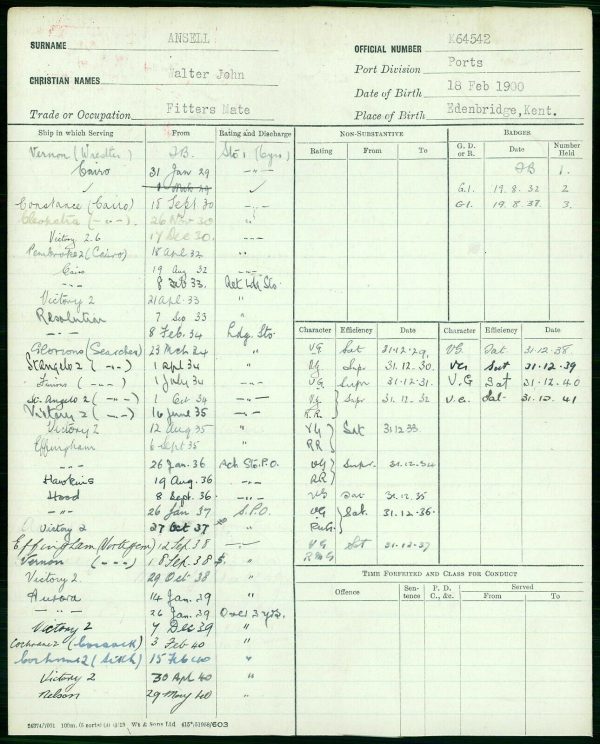 SURNAME ANSELL
OFFICIAL NUMBER K64542
CHRISTIAN NAMES Walter John
Port Division Ports
Date of Birth 18 Feb 1900
Trade or Occupation Fitters Mate
Place of Birth Edenbridge, Kent.
Ship in which Serving From Rating and Discharge
Vernon ( J.B. Sto 1
Cairo 31 Jan 29 -"-
✓ ✓
Constance (Cairo) 18 Sept 30 "
Cleopatra (-"-) 26 Nov 30 "
Victory 2.G 17 Dec 30. ---
Pembroke 2 (Cairo) 18 Apl 32 "
Cairo 19 Aug 32 ---
-"- 8 Feb 33. Act Ldg Sto.
Victory 2 21 Apl. 33 "
Resolution 7 Sep 33 "
-"- 8 Feb. 34 Ldg. Sto.
Glorious (Searcher) 23 Mch 34 "
St Angelo 2 (-"-) 1 Apl 34 "
(-"-) 1 July 34 "
St. Angelo 2 (-"-) 1 Oct 34 "
Victory 2 (-"-) 16 June 35 "
Victory 2 12 Aug 35 "
Effingham 6 Sept 35 "
-"- 26 Jan. 36 Act Sto. P.O.
Hawkins 19 Aug. 36 -"-
Hood 8 Sept. 36 -"-
-"- 26 Jan 37 S.P.O.
Victory 2 27 Oct 37 "
Effingham (Northern) 12 Sep. 38
Vernon (-"-) 18 Sep. 38 "
Victory 2. 29 Oct 38 "
Aurora 14 Jan. 39 "
-"- 26 Jan. 39 Over 3 yrs.
Victory 2 7 Dec 39 "
Cochrane 2 (Cossack) 3 Feb 40 "
Cochrane 2 (Sikh) 15 Feb 40 "
Victory 2 30 Apl 40 "
Nelson 29 May 40 "
NON-SUBSTANTIVE
Rating From To
BADGES
G. D. or R. Date Number Held
JB 1.
G.1. 19. 8. 32 2
G1. 19. 8. 38. 3.
Character Efficiency Date Character Efficiency Date
VG Sat 31.12.29. VG. Sat 31.12.38
VG Supr 31.12.30. VG Sat 31.12.39
VG Supr 31.12.31. V.G Sat 31.12.40
VG R.R. Supr 31.12.32 V.G. Sat 31.12.41
VG RR Sat 31.12.33
VG RR Supr. 31.12.34
VG Sat 31.12.35
VG Sat. 31.12.36.
VG Sat 31.12.37
TIME FORFEITED AND CLASS FOR CONDUCT
Offence Sentence P. D. C., &c. Served From To
Wt & Sons Ltd